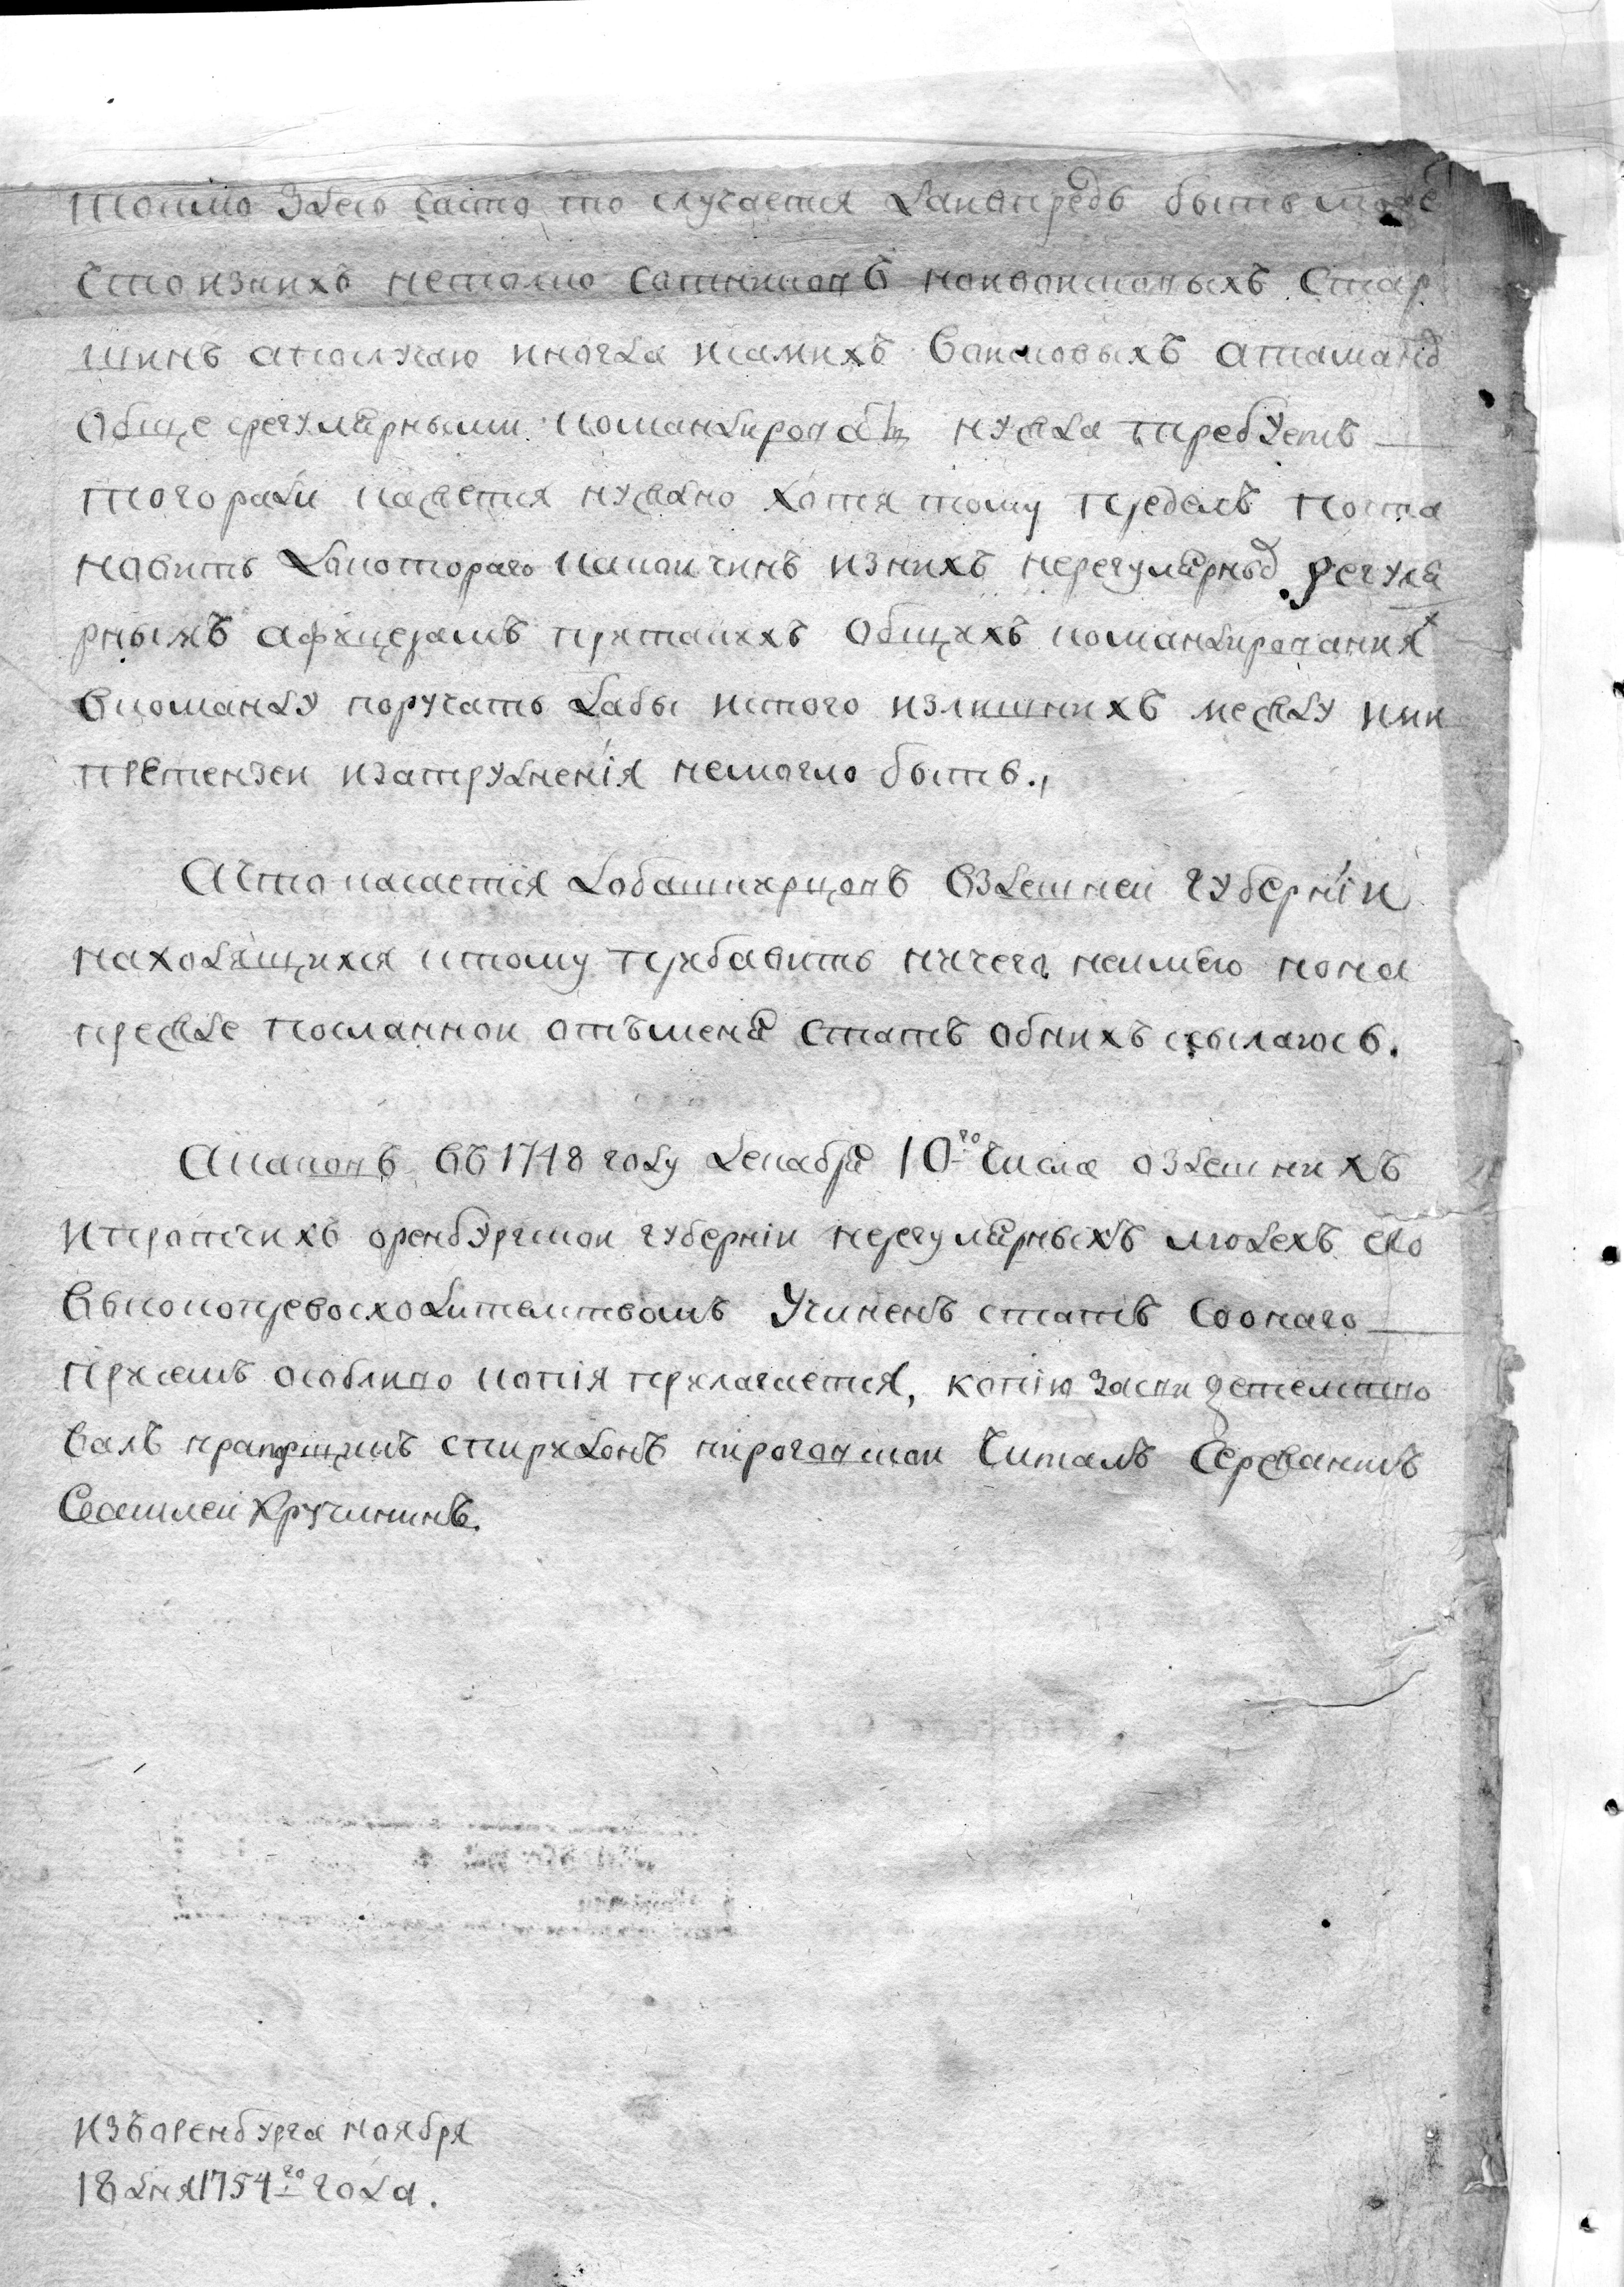 толко здесь часто то случается даивпредь быть може
что изнихъ нетолко сотниковъ ноивоисковыхъ стар
шинъ апослучаю иногда исамихъ воисковыхъ атамановъ
обще срегулярными командировать нужда требуетъ
того ради кажется нужно хотя тому пределъ поста
новить докотораго каковъ чинъ изнихъ нерегулярных регуля
рнымъ афицерамъ притакихъ общихъ командированиях
вкоманду поручать дабы истого излишнихъ между ими
претензеи изатрудненія немогло быть.,
Ачто касается добашкирцовъ вздешнеи губерніи
находящихся ктому прибавить ничего неимею нона
прежде посланнои отъменя статъ обнихъ ссылаюсь.
Акаковъ въ 1748 году декабря 10го числа оздешнихъ
ипротчихъ оренбургскои губерніи нерегулярныхъ людехъ его
высокопревосходителствомъ учиненъ статъ сооного
присемъ особливо копія прилагается, копію засвидетелство
валъ прапорщикъ спиридонъ пироговскои читалъ сержантъ
василеи кручининъ.
изъоренбурга ноября
18 дня 1754го года.